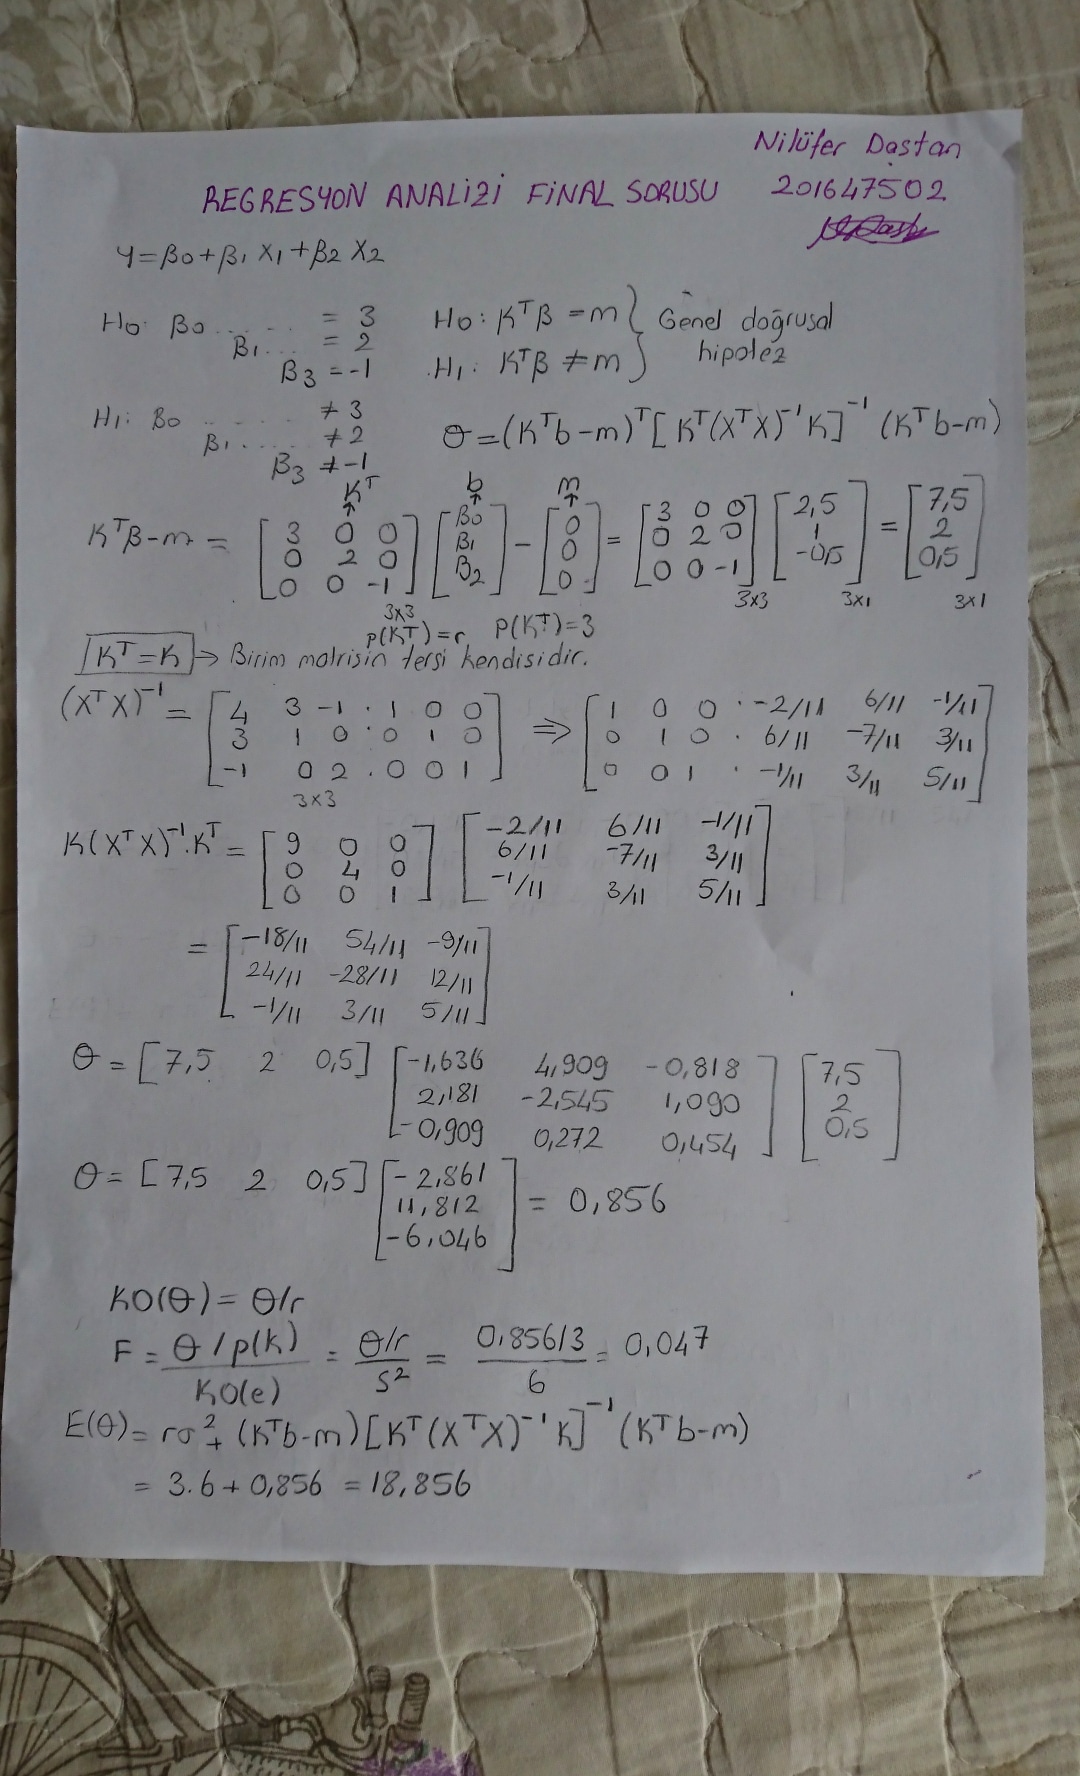 Nilüfer Dastan
REGRESYON ANALİZİ FİNAL SORUSU 201647502
Y=β0+β1 X1+β2 X2
H0: β0 ....... = 3 H0: K^Tβ = m } Genel doğrusal
β1.... = 2 H1: K^Tβ ≠ m } hipotez
β3 = -1
H1: β0 ....... ≠ 3
β1....... ≠ 2 θ = (K^Tb-m)^T [K^T(X^TX)^-1 K]^-1 (K^Tb-m)
β3 ≠ -1
K^T b m
K^Tβ-m = [3 0 0; 0 2 0; 0 0 -1] [β0; β1; β2] - [0; 0; 0] = [3 0 0; 0 2 0; 0 0 -1] [2,5; 1; -0,5] = [7,5; 2; 0,5]
3x3 3x3 3x1 3x1
p(K^T)=r p(K^T)=3
K^T=K → Birim matrisin tersi kendisidir.
(X^TX)^-1 = [4 3 -1 : 1 0 0; 3 1 0 : 0 1 0; -1 0 2 : 0 0 1] ⇒ [1 0 0 : -2/11 6/11 -1/11; 0 1 0 : 6/11 -7/11 3/11; 0 0 1 : -1/11 3/11 5/11]
3x3
K(X^TX)^-1.K^T = [9 0 0; 0 4 0; 0 0 1] [-2/11 6/11 -1/11; 6/11 -7/11 3/11; -1/11 3/11 5/11]
= [-18/11 54/11 -9/11; 24/11 -28/11 12/11; -1/11 3/11 5/11]
θ = [7,5 2 0,5] [-1,636 4,909 -0,818; 2,181 -2,545 1,090; -0,909 0,272 0,454] [7,5; 2; 0,5]
θ = [7,5 2 0,5] [-2,861; 11,812; -6,046] = 0,856
KO(θ) = θ/r
F = θ/p(k) / KO(e) = θ/r / S^2 = 0,856/3 / 6 = 0,047
E(θ) = rσ^2 + (K^Tb-m) [K^T(X^TX)^-1 K]^-1 (K^Tb-m)
= 3.6 + 0,856 = 18,856